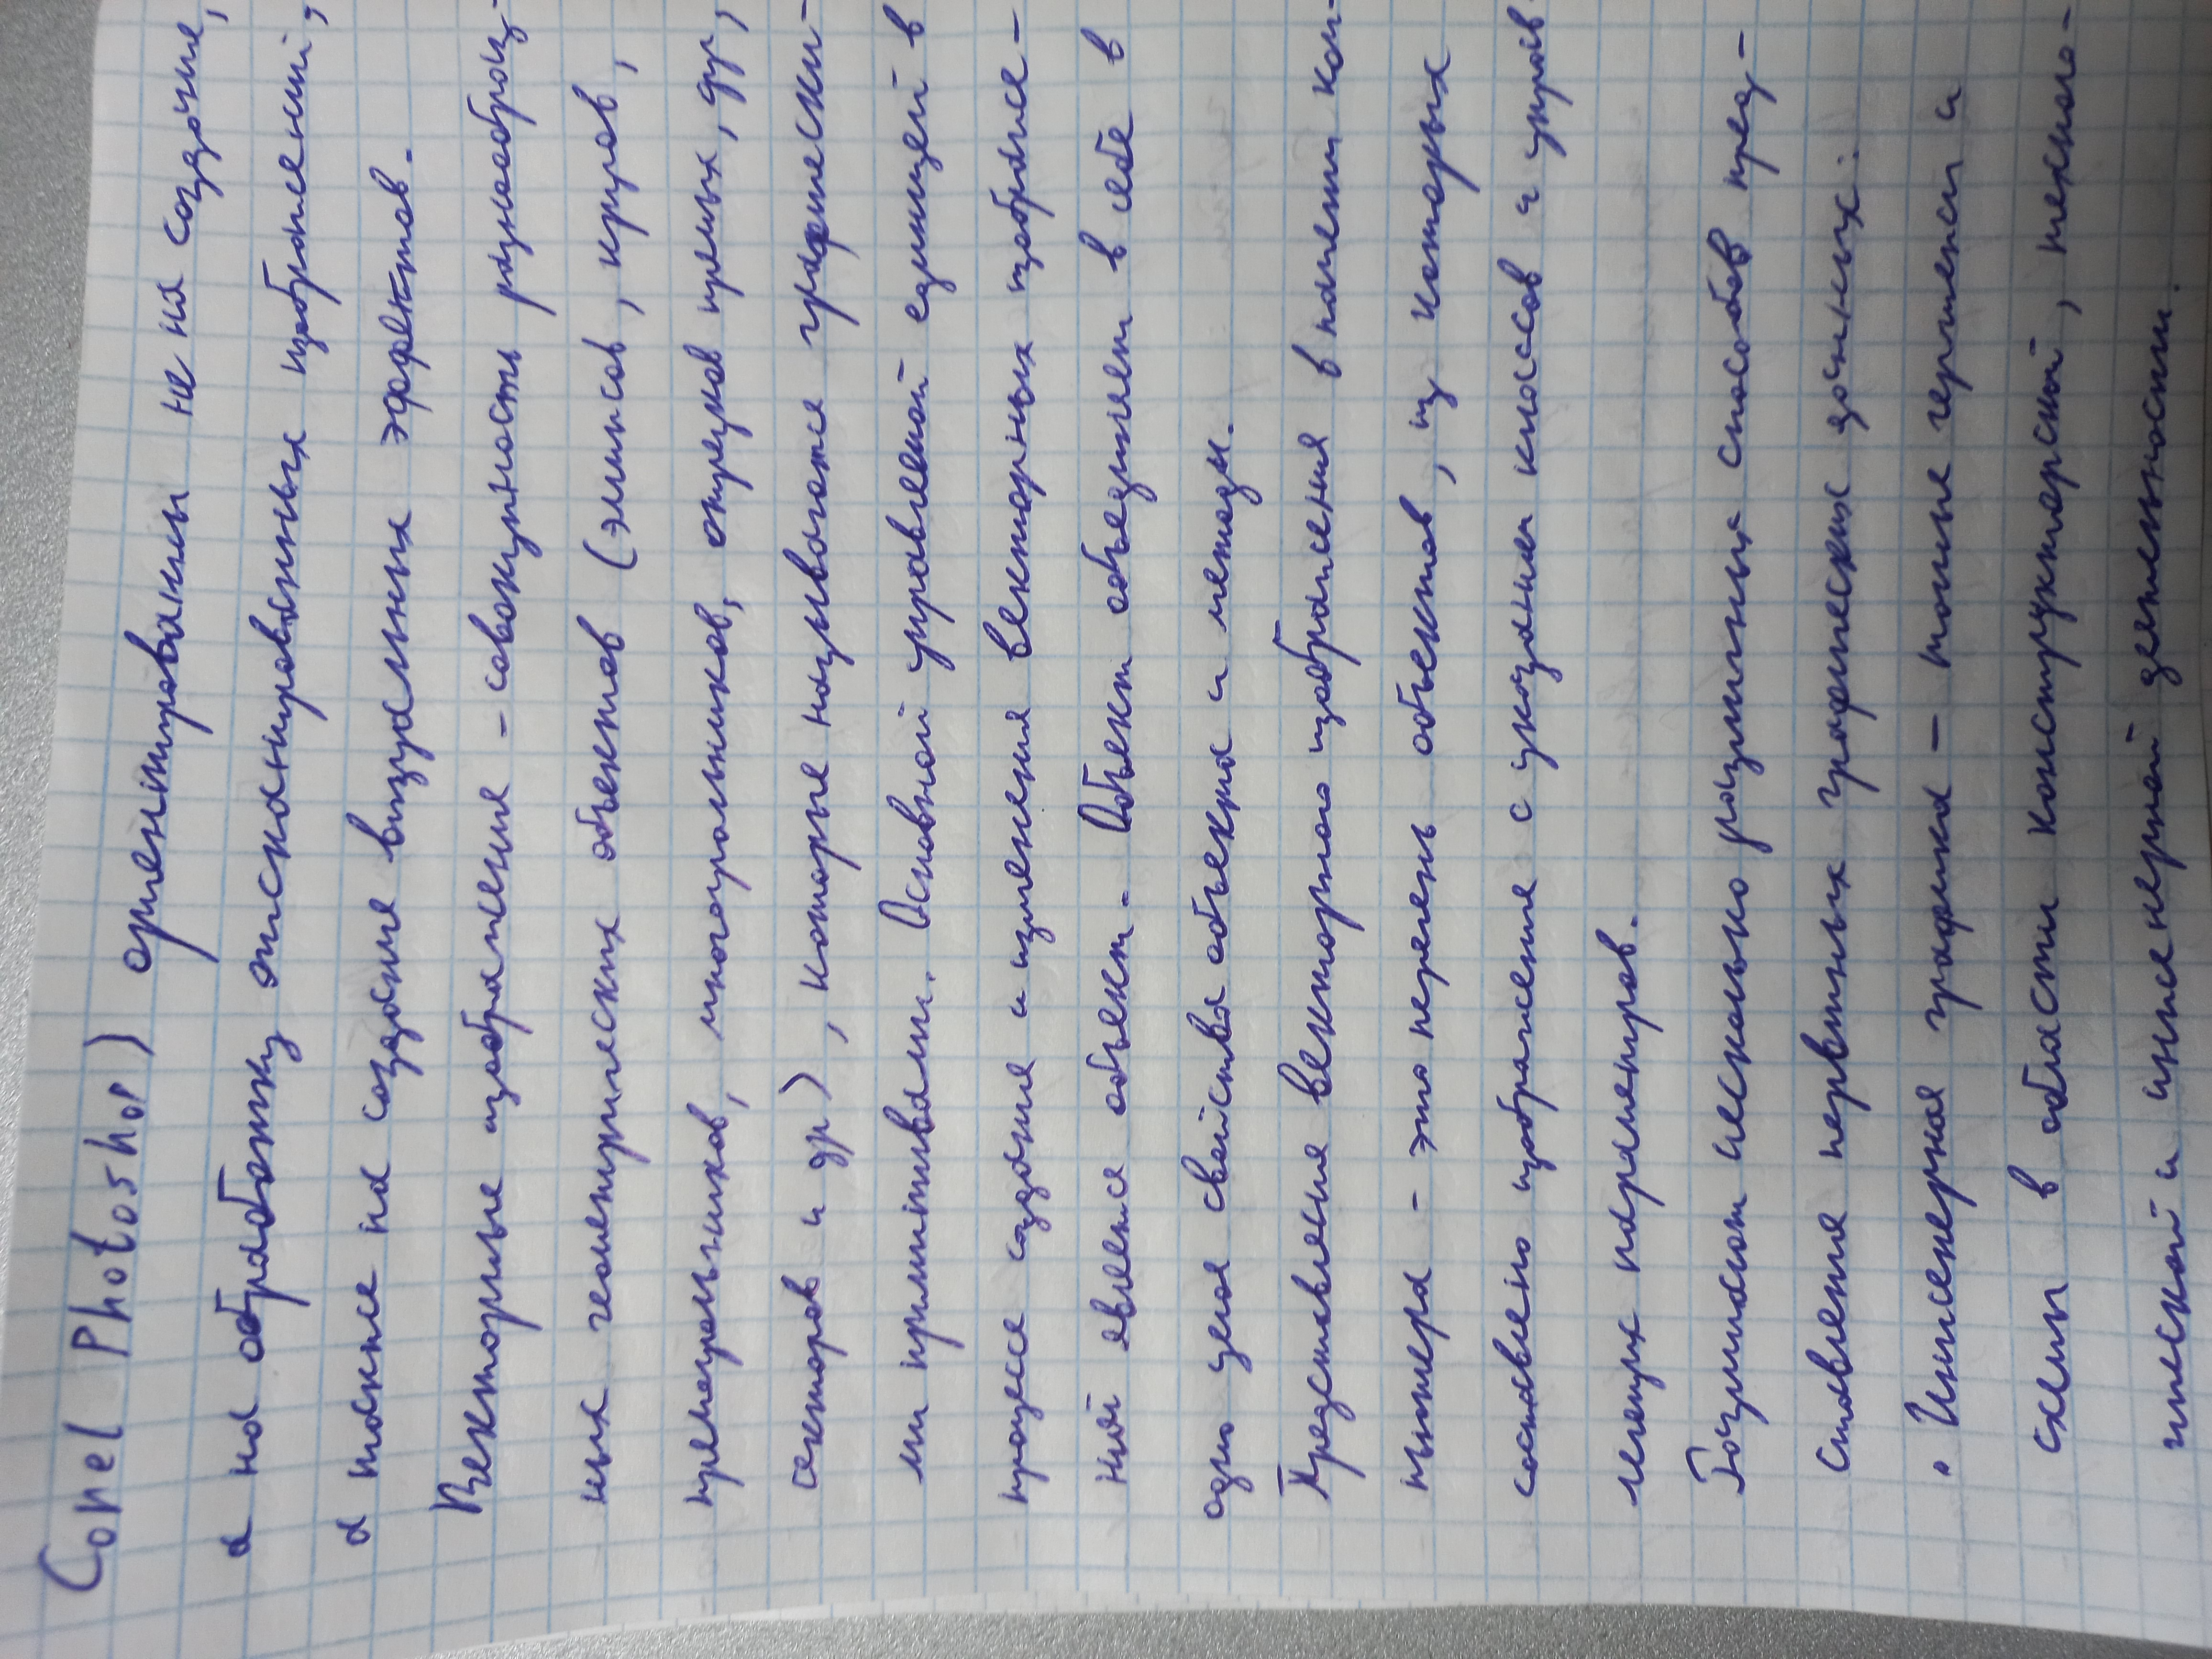 Conel Photoshop) ориентированны не на создание,
а на обработку отсканированных изображений,
а также на создание визуальных эффектов.
Векторные изображения - совокупность разнообраз-
ных геометрических объектов (элипсов, кругов,
прямоугольников, многоугольников, отрезков прямых, дуг,
секторов и др), которые называются графически-
ми примитивами. Основной управляемой единицей в
процессе создания и изменения векторных изображе-
ний является объект. Объект объединяет в себе в
одно целое свойства объекта и методы.
Представление векторного изображения в памяти ком-
пьютера - это перечень объектов, из которых
составлено изображение с указанием классов и управ
ляющих параметров.
Различают несколько различных способов пред-
ставления первичных графических данных:
• Инженерная графика - точные чертежи и
схемы в области конструкторской, техноло-
гической и инженерной деятельности.